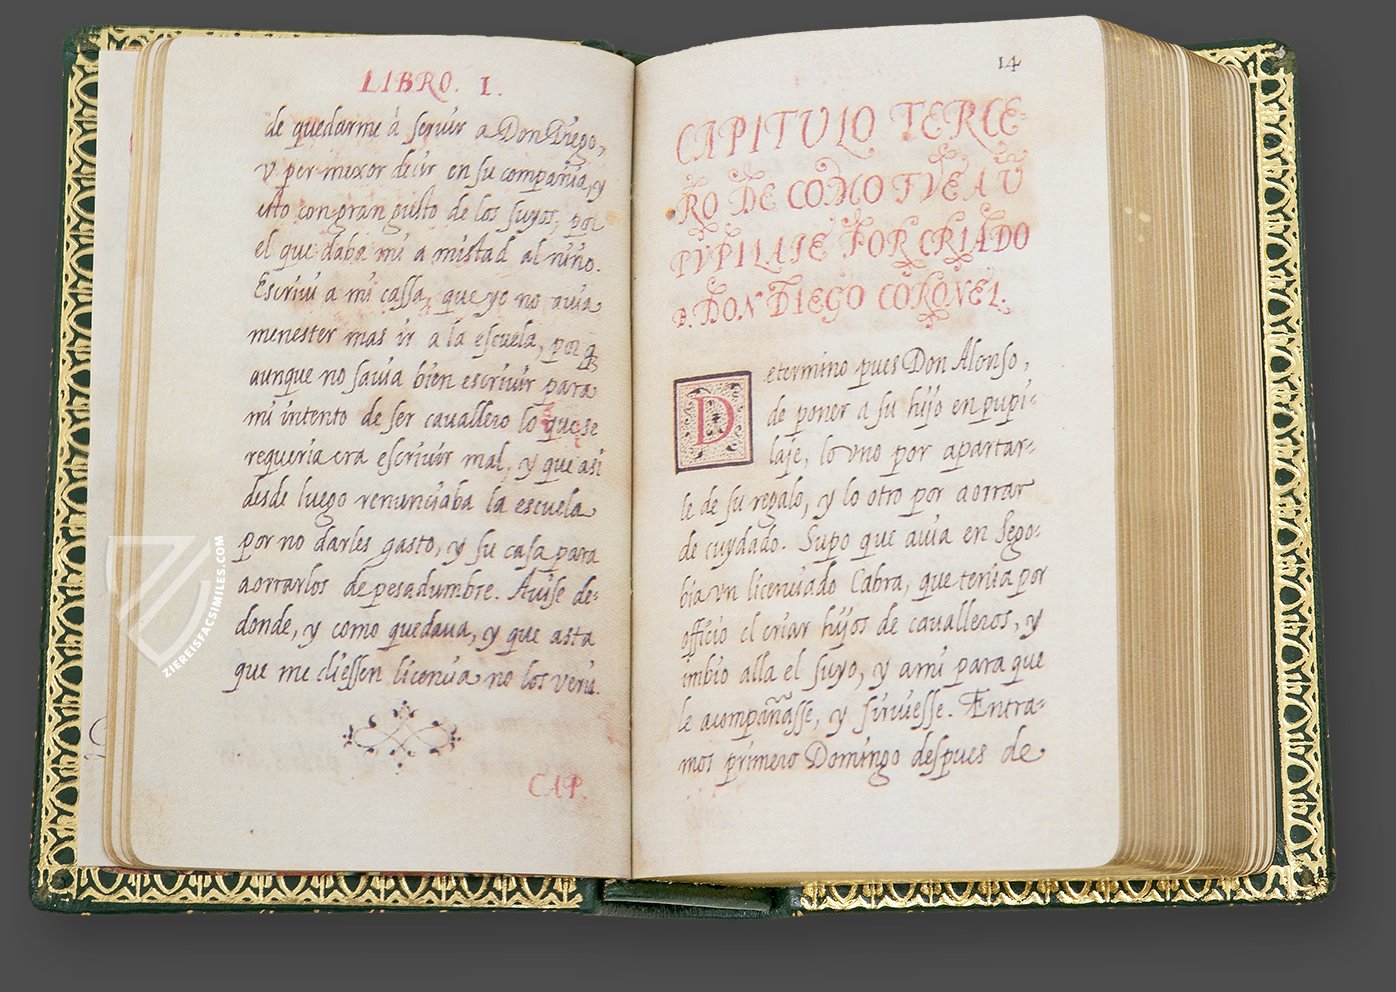 LIBRO. I.
de quedarme à seruir a Don Diego,
y per mexor decir en su compañia, y
esto con gran gusto de los suyos, por
el que daba mi amistad al niño.
Escriui a mi cassa, que yo no auia
menester mas ir a la escuela, por q̃
aunque no sauia bien escriuir para
mi intento de ser cauallero lo que se
requeria era escriuir mal, y que asi
desde luego renunciaba la escuela
por no darles gasto, y su casa para
aorrarlos de pesadumbre. Auise de-
donde, y como quedaua, y que asta
que me diessen licencia no los veria.
CAP.
14
CAPITULO TERCE-
RO DE COMO FVE A U
PVPILAJE POR CRIADO
D. DON DIEGO CORONEL.
Determino pues Don Alonso,
de poner a su hijo en pupi-
laje, lo vno por apartar-
le de su regalo, y lo otro por aorrar
de cuydado. Supo que auia en Sego-
bia vn licenciado Cabra, que tenia por
officio el criar hijos de caualleros, y
imbio alla el suyo, y a mi para que
le acompañasse, y siruiesse. Entra-
mos primero Domingo despues de
ZIEREISFACSIMILES.COM